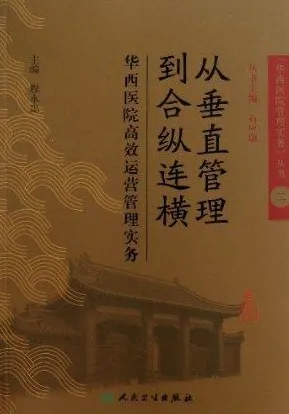 《华西医院管理实务》丛书
丛书主编
从垂直管理
到合纵连横
华西医院高效运营管理实务
主编 程永忠
人民卫生出版社